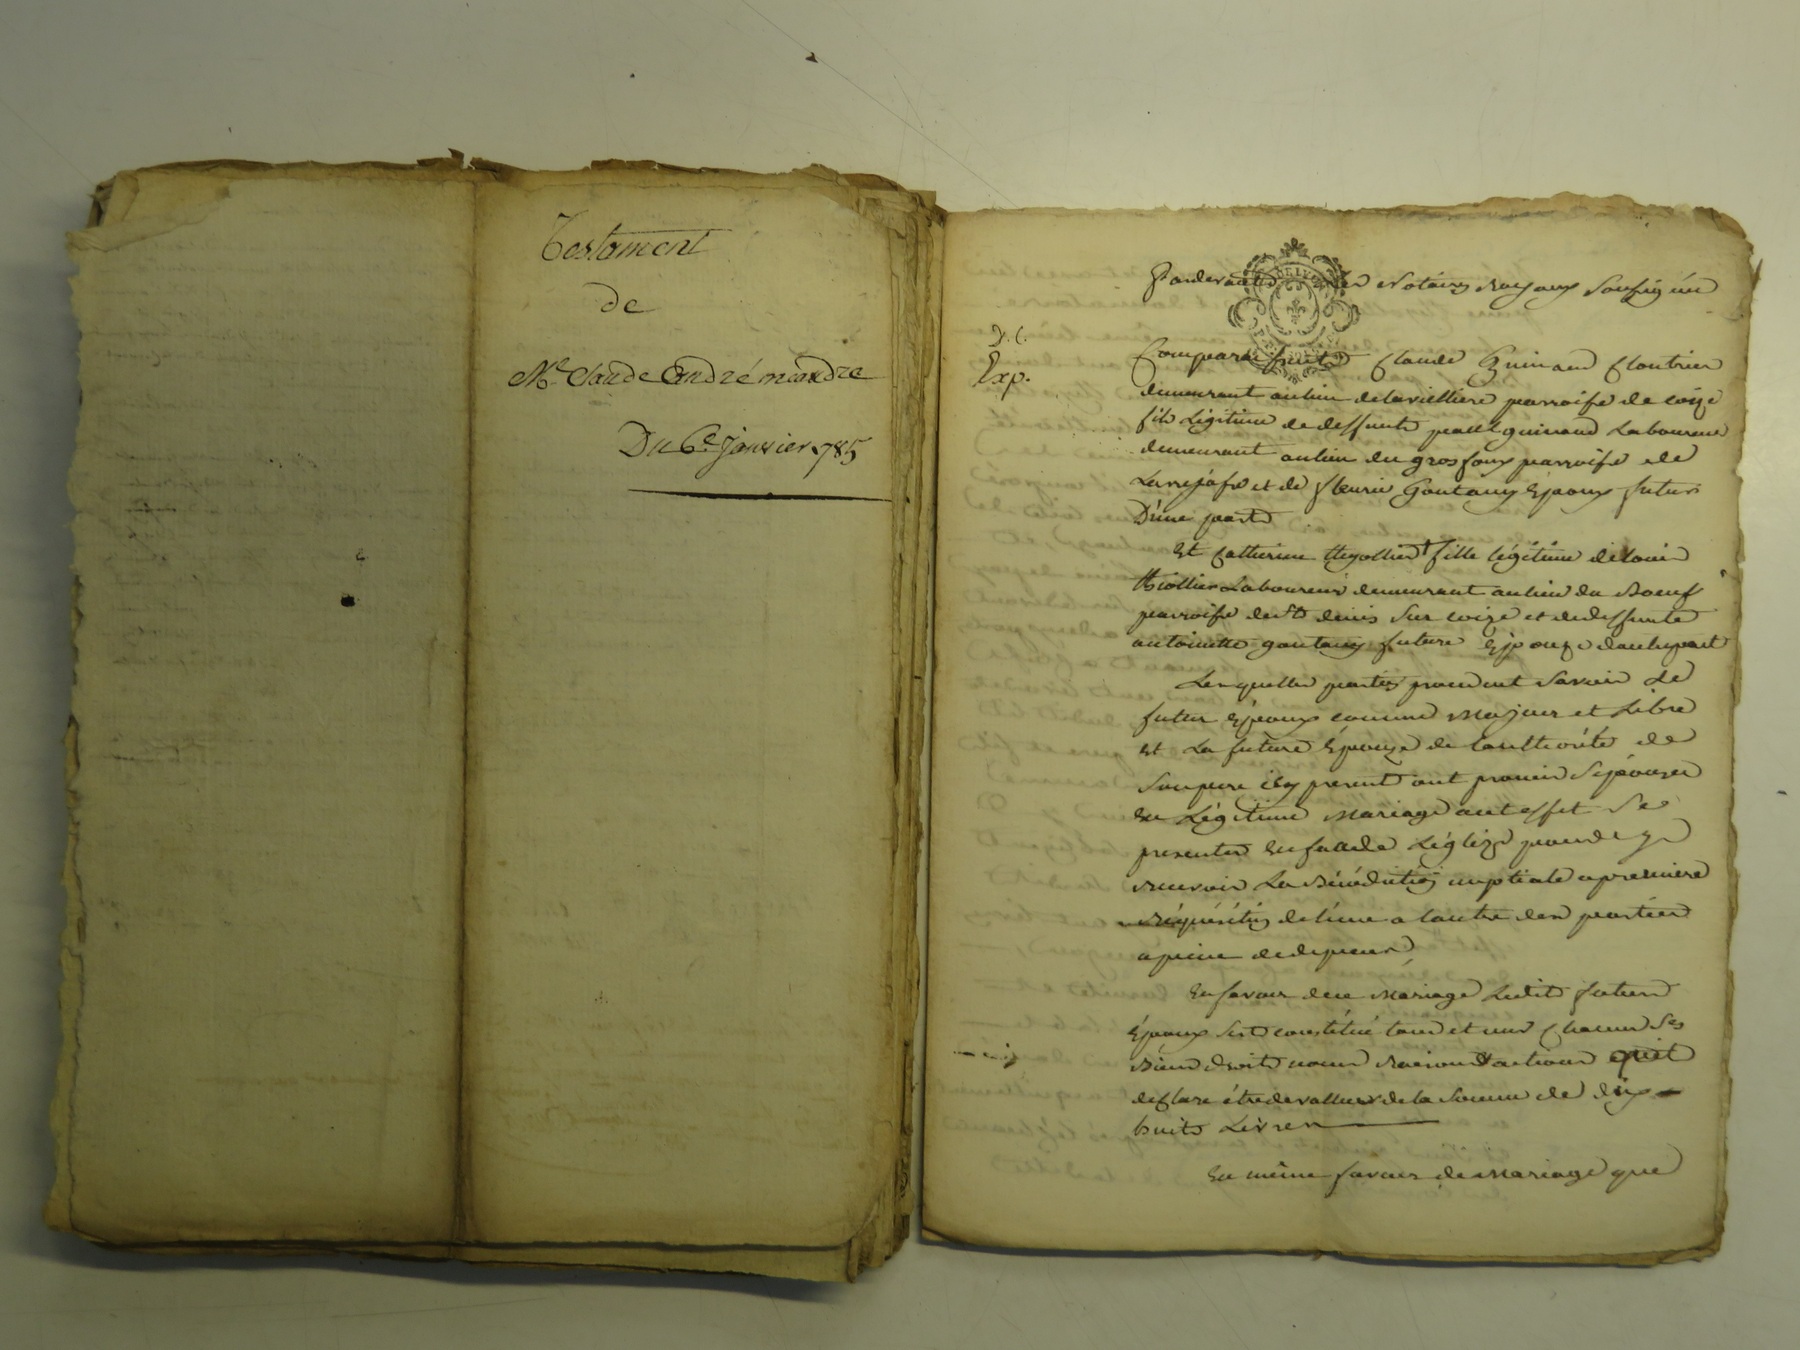 Testament
de
Me Claude André
Du 6e Janvier 1785
Pardevant les Notaires Royaux soussignés
Exp.
Comparants Claude Guinand Cloutrier
demeurant au lieu de lavilliere parroisse de coize
fils Légitime de deffunt guinand Laboureur
demeurant au lieu du gros foux parroisse de
Larajasse et de fleurie Goutany Epoux futur
D'une part
Et Catherine thyollier fille légitime de louis
thiollier Laboureur demeurant au lieu du Boeuf
parroisse de st denis sur coize et de deffunte
antoinette goutany future Epouze dautre part
Lesquelles parties procedent savoir Le
futur Epoux comme Majeur et Libre
et La future Epouze de lauthorité de
son pere icy present ont promis sepouzer
en Légitime Mariage a cet effet se
presenter en face de Léglize pour de y
recevoir La Bénédiction nuptiale a premiere
réquisition de l'une a lautre des parties
a peine de depens
En faveur de ce Mariage Ledit futur
Epoux sest constitué tous et uns chacuns ses
Biens droits noms raisons & actions quil
declare être de valleur de la somme de dix
huits Livres
En même faveur de Mariage que